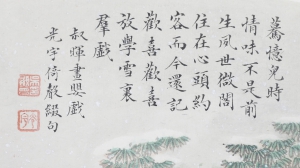 驀憶兒時
情味不是前
生夙世微闇
住在心頭約
容而今還記
歡喜歡喜
放學雪裏
羣戲
叔暉畫嬰戲
光宇倚聲綴句